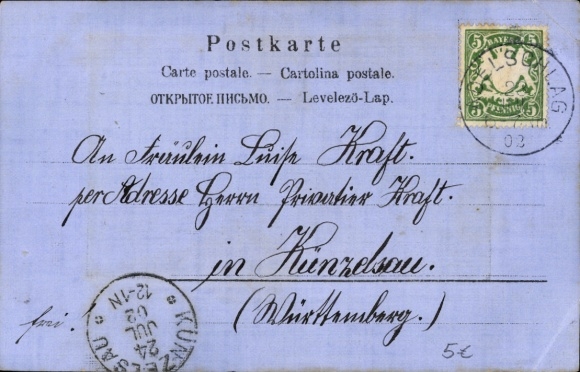 Postkarte
Carte postale. — Cartolina postale.
ОТКРЫТОЕ ПИСЬМО. — Levelező-Lap.
5 BAYERN 5
5 PFENNIG 5
02
An Fräulein Luise Kraft.
per Adresse Herrn Privatier Kraft.
in Künzelsau.
(Württemberg.)
frei.
KÜNZELSAU
24
JUL
02
12-1N
5€